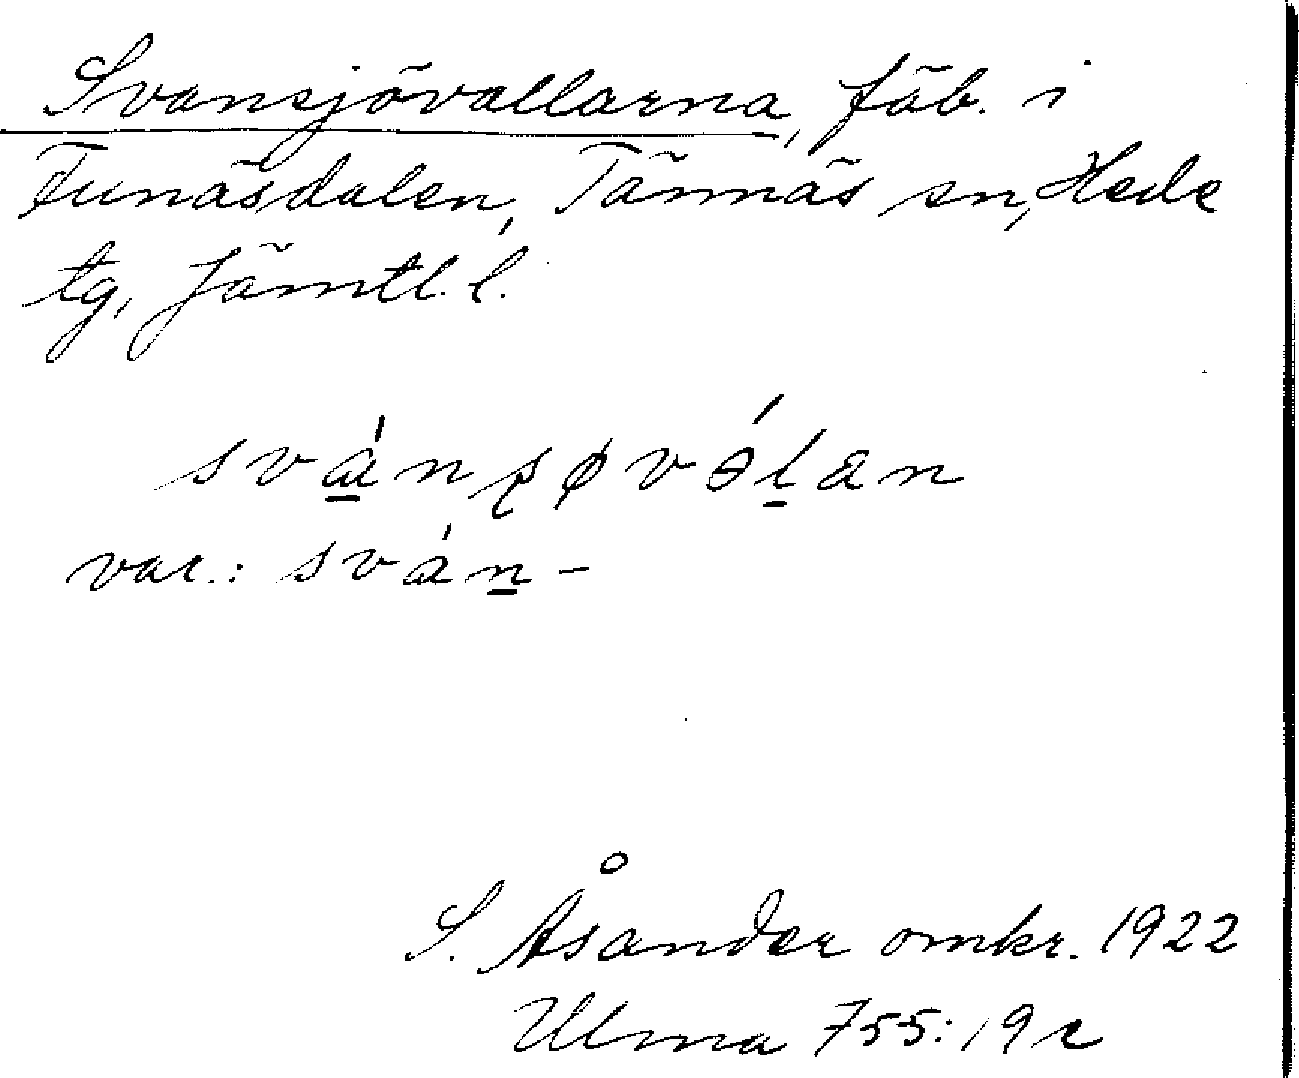 Svansjövallarna, fäb. i
Funäsdalen, Tännäs sn, Hede
tg, Jämtl. l.
sva̲̍nʂøvɵ́l̲an
var.: sva̍n̲-
S. Åsander omkr. 1922
Ulma 755: 19c